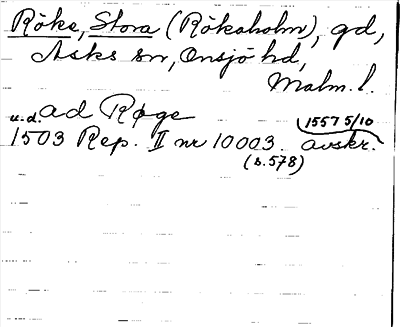 Röke, Stora (Rökaholm), gd,
Asks sn, Onsjö hd,
Malm. l.
u.d. ad Røge
1557 5/10
1503 Rep. II nr 10003. avskr.
(s. 578)